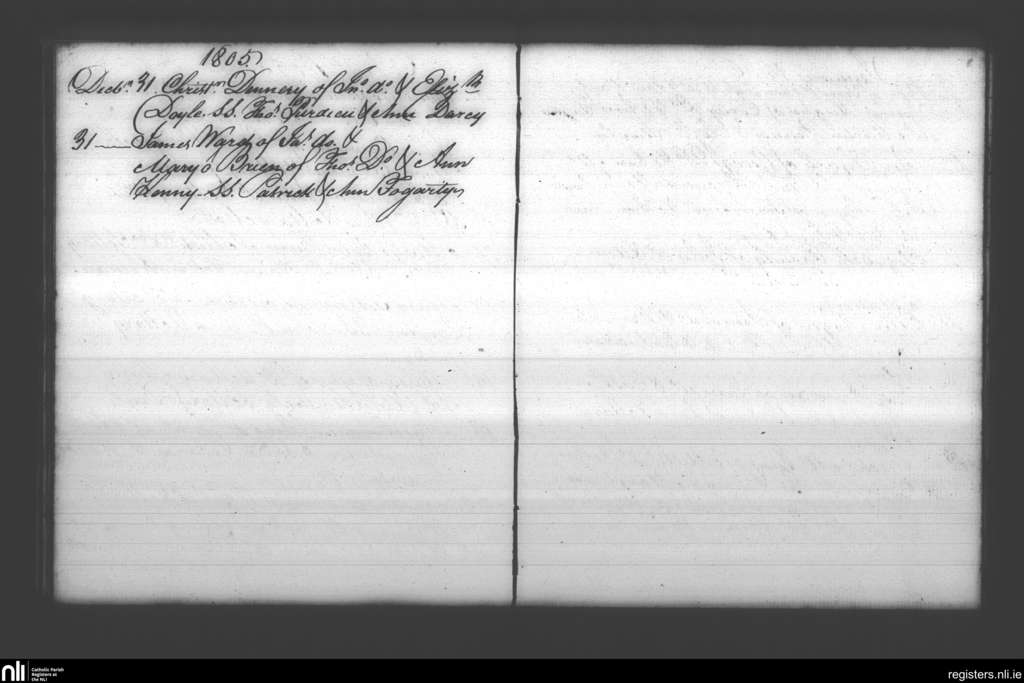 1805
Decbr. 31 Christr. Dennery of Jno. do. & Elizth
Doyle. SS. Thos. & Ann Darcy
31 James Ward of Jas. do. &
Mary o Brien of Thos. Do. & Ann
Kenny. SS. Patrick & Ann Fogarty
nli Catholic Parish
Registers at
the NLI
registers.nli.ie